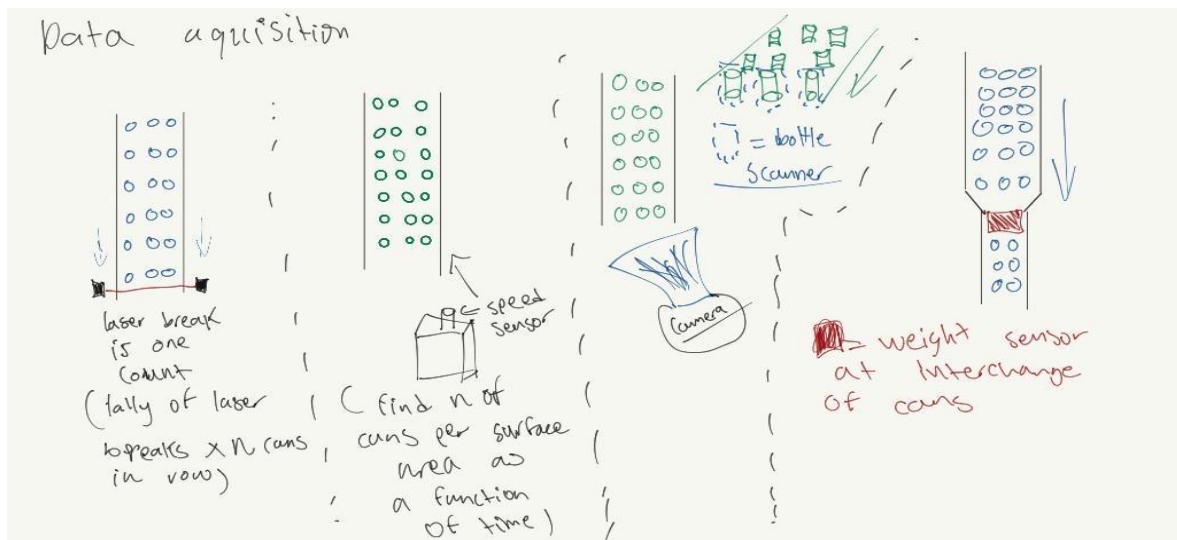 Data aquisition
laser break
is one
count
(tally of laser
breaks x N cans
in row)
speed
sensor
( find n of
cans per surface
area as
a function
of time)
= bottle
scanner
Camera
= weight sensor
at interchange
of cans